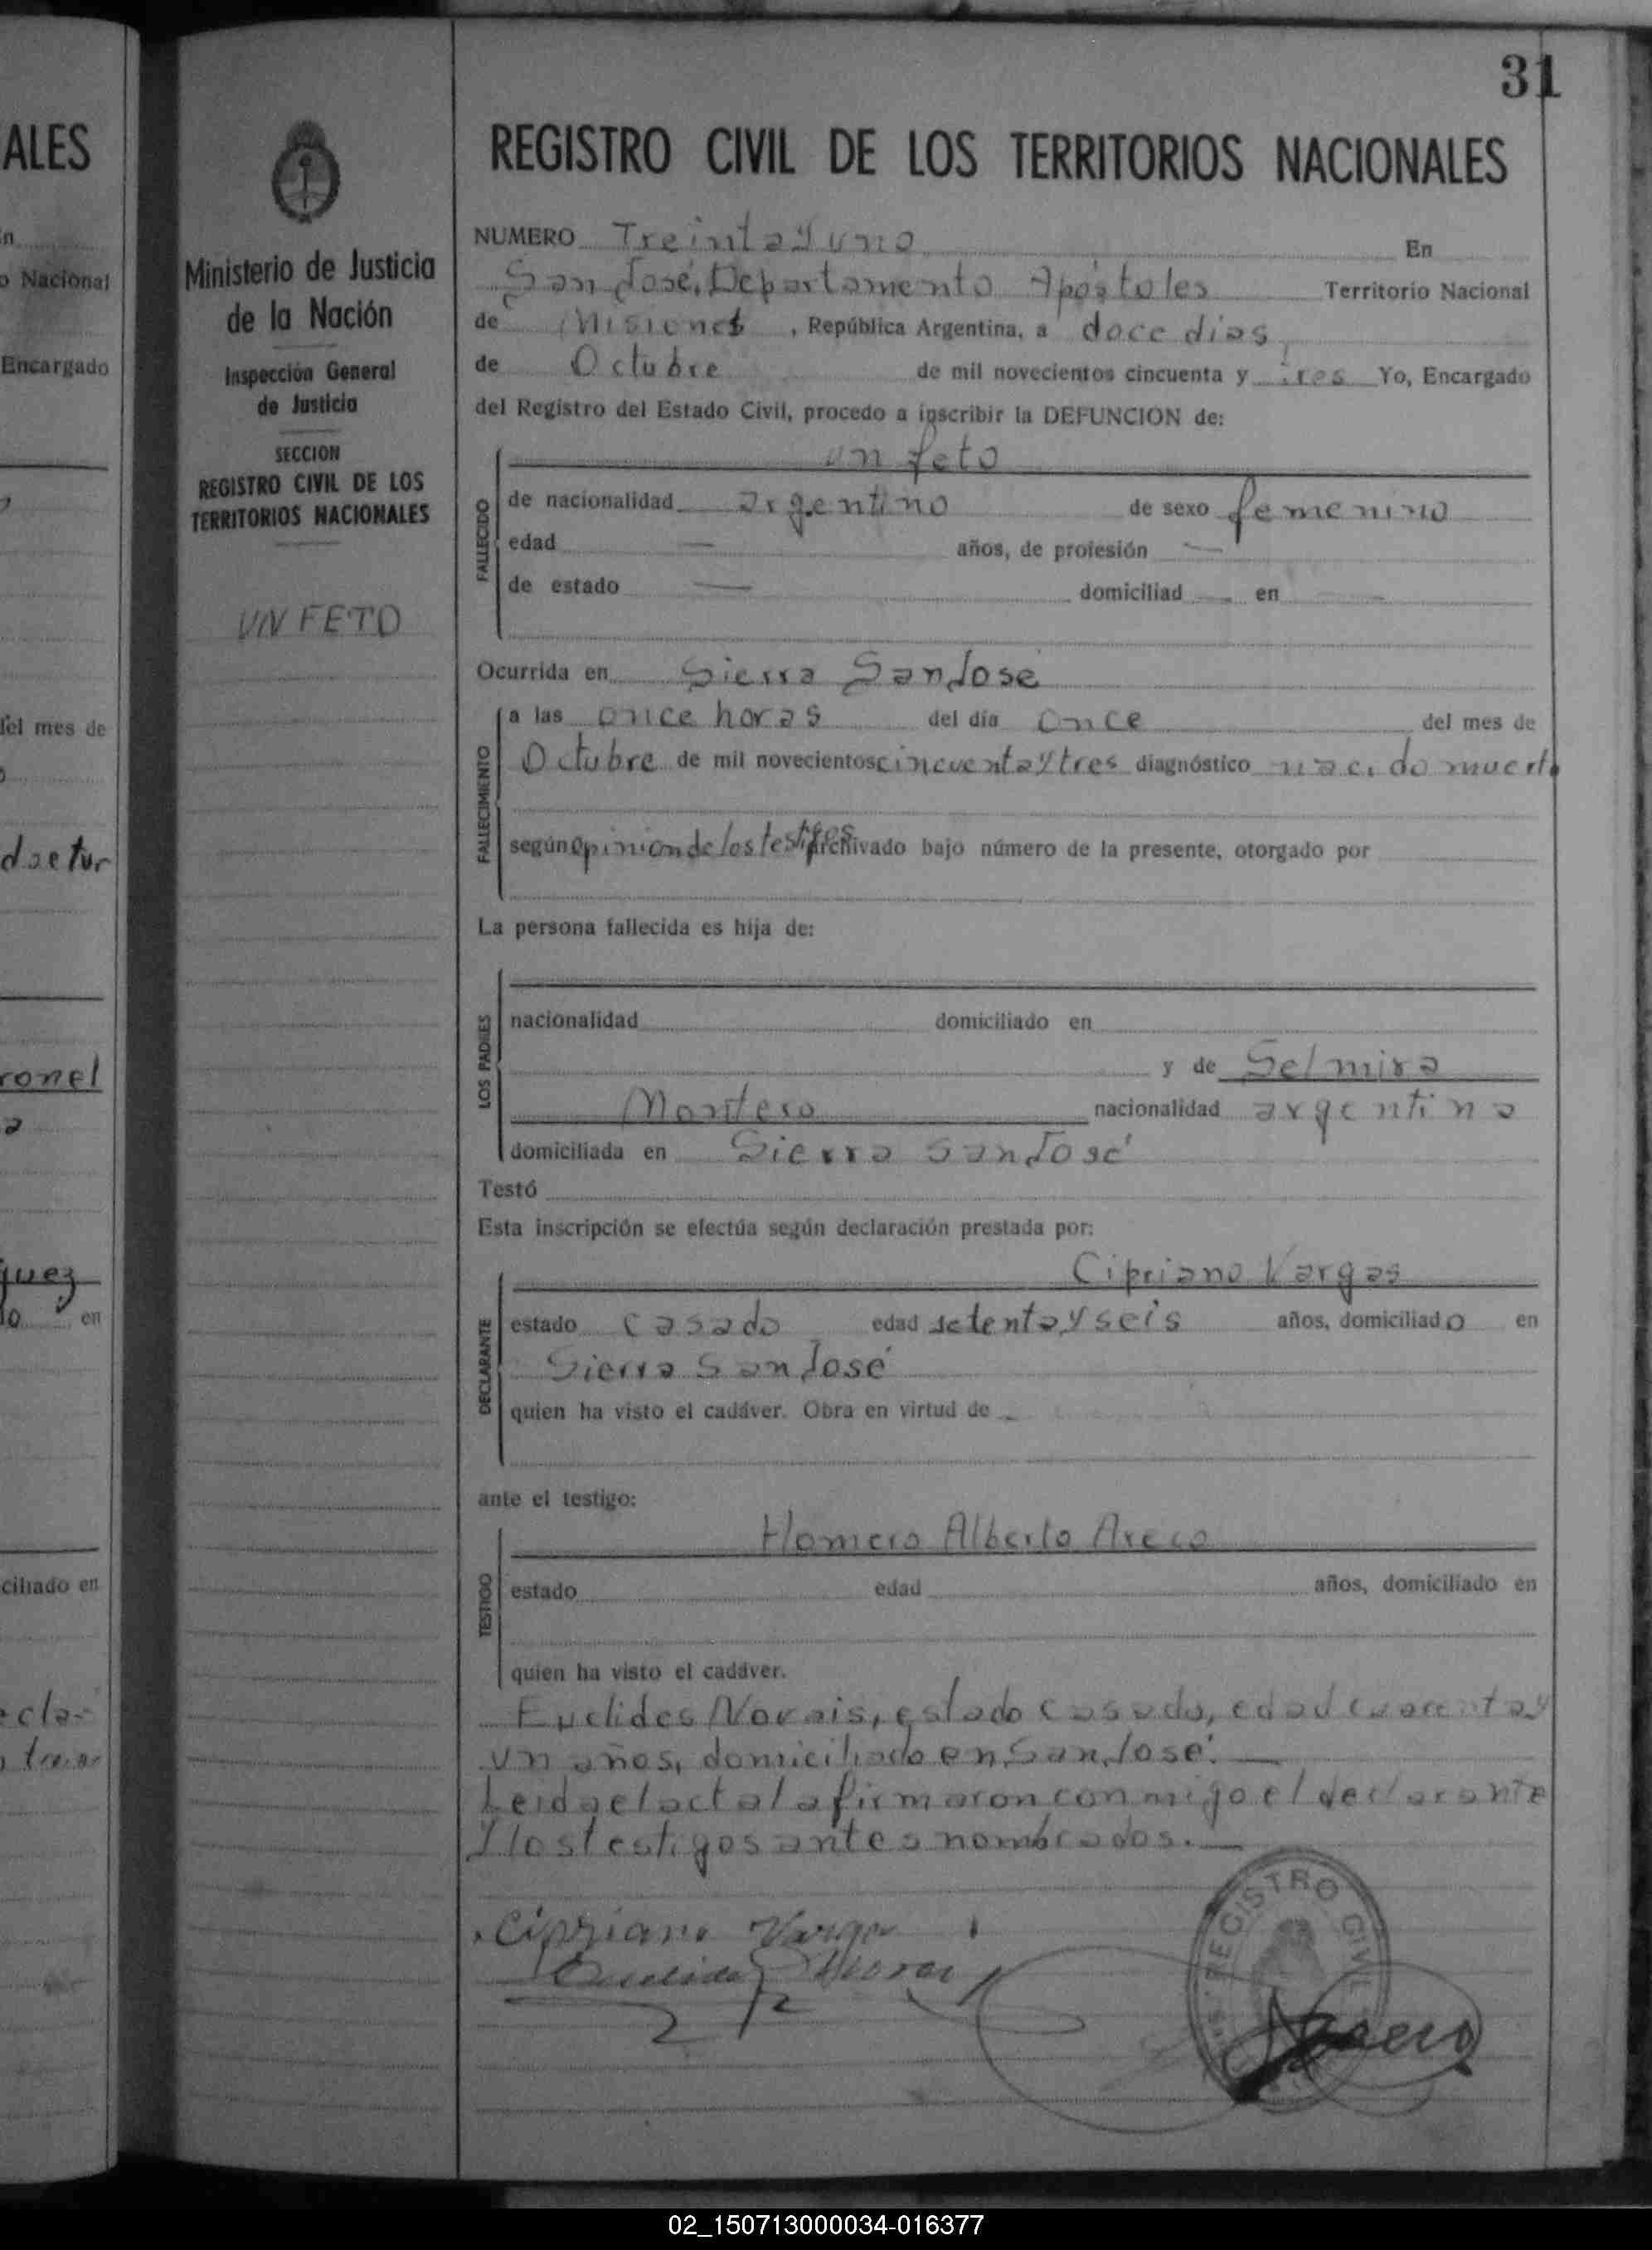 31
ALES
n
o Nacional
Encargado
del mes de
doctor
ronel
a
quez
lo en
ciliado en
ecla-
Ministerio de Justicia
de la Nación
Inspección General
de Justicia
SECCION
REGISTRO CIVIL DE LOS
TERRITORIOS NACIONALES
UN FETO
REGISTRO CIVIL DE LOS TERRITORIOS NACIONALES
NUMERO Treinta y uno En
San José, Departamento Apóstoles Territorio Nacional
de Misiones, República Argentina, a doce dias
de Octubre de mil novecientos cincuenta y tres Yo, Encargado
del Registro del Estado Civil, procedo a inscribir la DEFUNCION de:
un feto
FALLECIDO
de nacionalidad argentino de sexo femenino
edad — años, de profesión —
de estado — domiciliad — en —
Ocurrida en Sierra San José
FALLECIMIENTO
a las once horas del día once del mes de
Octubre de mil novecientos cincuenta y tres diagnóstico nacido muerto
según opinion de los testigos archivado bajo número de la presente, otorgado por
La persona fallecida es hija de:
LOS PADRES
nacionalidad domiciliado en
y de Selmira
Montero nacionalidad argentina
domiciliada en Sierra San José
Testó
Esta inscripción se efectúa según declaración prestada por:
Cipriano Vargas
DECLARANTE
estado casado edad setenta y seis años, domiciliado en
Sierra San José
quien ha visto el cadáver. Obra en virtud de -
ante el testigo:
Homero Alberto Areco
TESTIGO
estado edad años, domiciliado en
quien ha visto el cadáver.
Euclides Novais, estado casado, edad cuarenta y
un años, domiciliado en San José. —
Leida el acta la firmaron conmigo el declarante
y los testigos antes nombrados. —
Cipriano Vargas
REGISTRO CIVIL
02_150713000034-016377